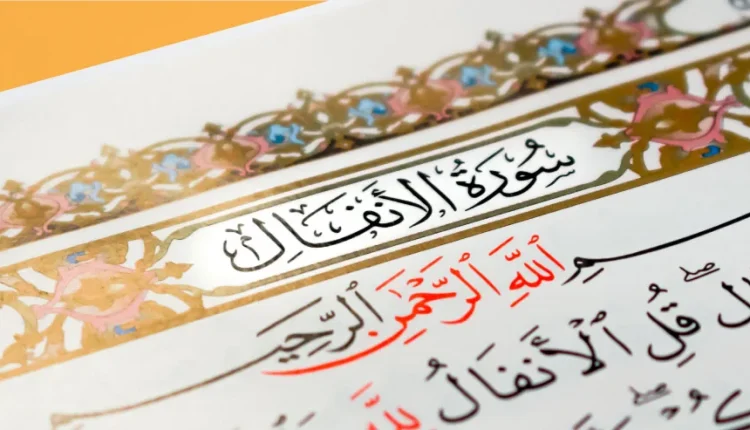 سُورَةُ الأَنفَالِ
ـسْمِ ٱللَّهِ ٱلرَّحْمَٰنِ ٱلرَّحِيـ
ـالِ ۖ قُلِ ٱلْأَنفَالُ لِلَّهِ